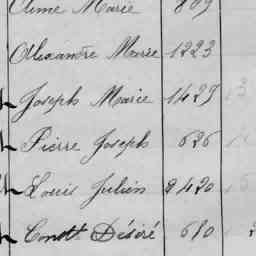 Aimé Marie 809
Alexandre Marie 1223
Joseph Marie 1427
Pierre Joseph 626
Louis Julien 2420
Const Désiré 610